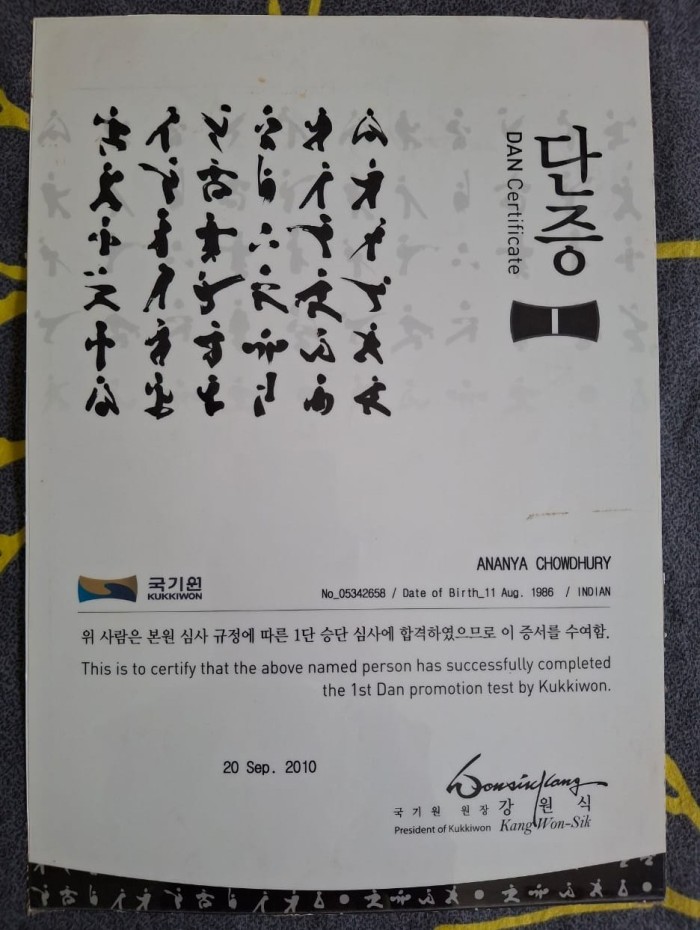 단증
DAN Certificate
국기원
KUKKIWON
ANANYA CHOWDHURY
No_05342658 / Date of Birth_11 Aug. 1986 / INDIAN
위 사람은 본원 심사 규정에 따른 1단 승단 심사에 합격하였으므로 이 증서를 수여함.
This is to certify that the above named person has successfully completed
the 1st Dan promotion test by Kukkiwon.
20 Sep. 2010
WonsikKang
국기원 원장 강 원 식
President of Kukkiwon Kang Won-Sik